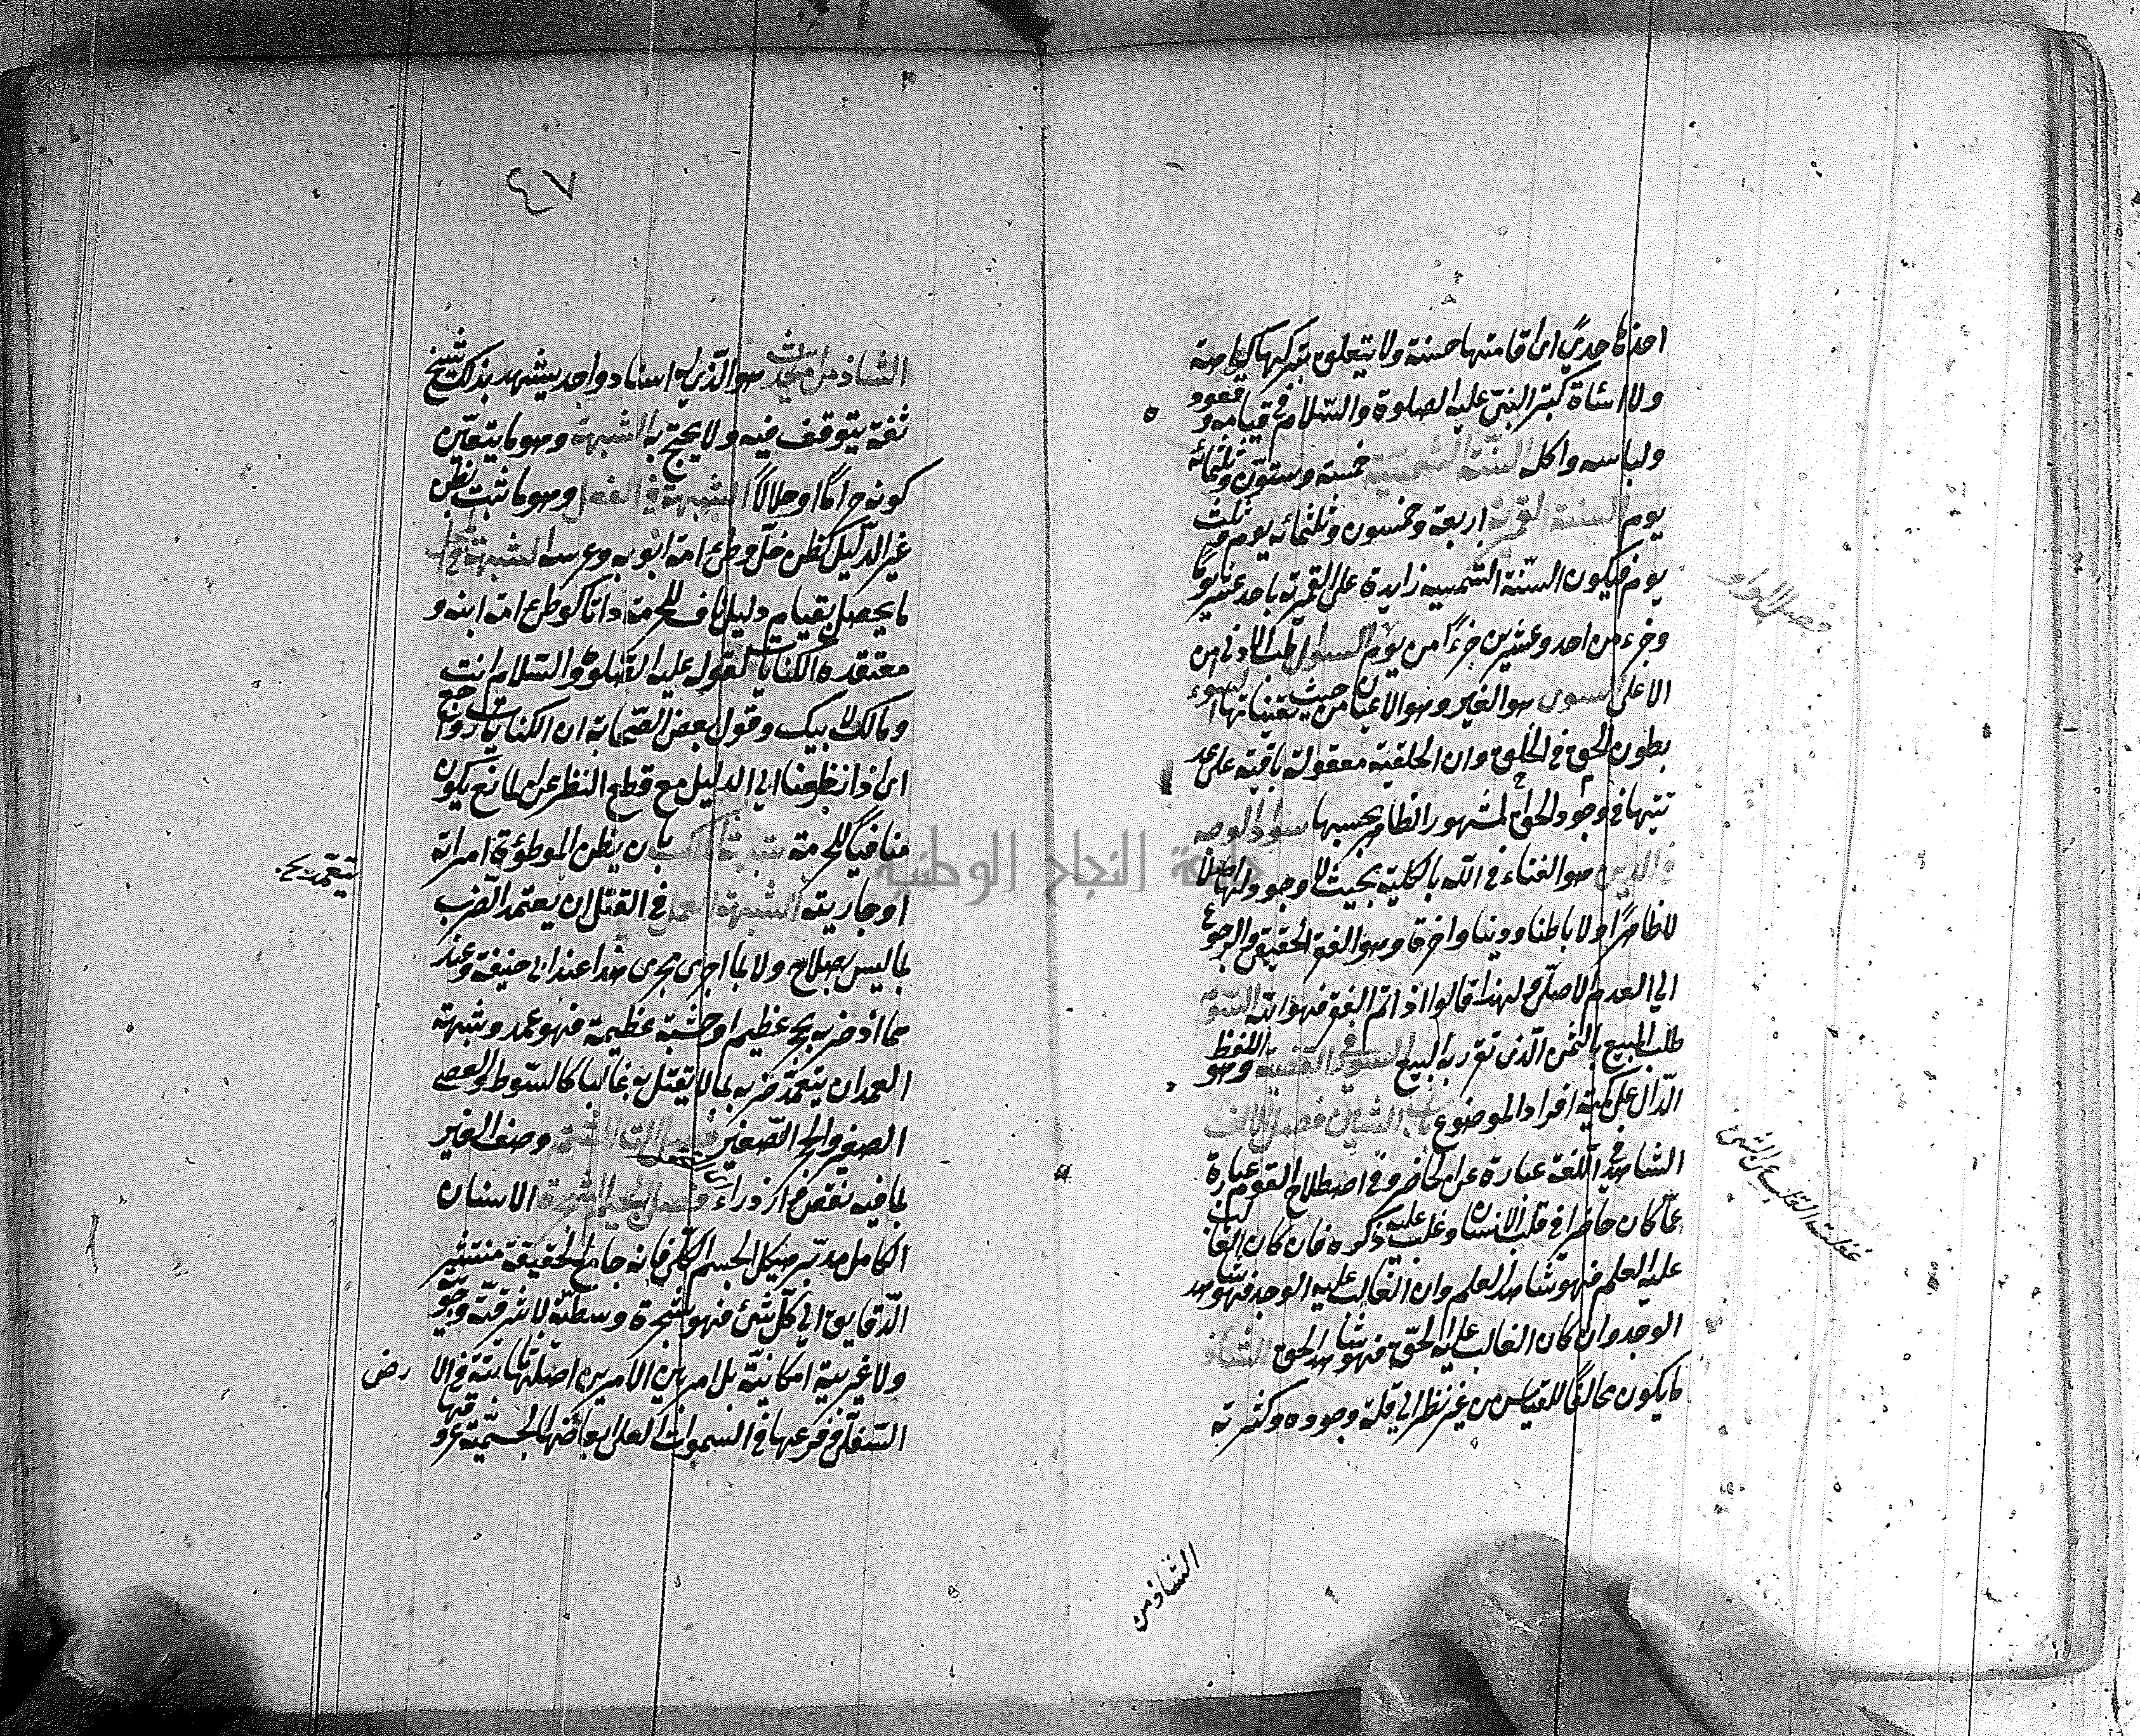 اخذها هدي اى اقامتها حسنة ولا يتعلق بتركها كراهة
ولا اساة كسير النبى عليه الصلوة والسلام فى قيامه و قعوده
ولباسه واكله السنة الشمسية خمسة وستون وثلثمائة
يوم السنة القمرية اربعة وخمسون وثلثمائه يوم وثلث
يوم فيكون السّنة الشمسيه زايدة على القمرية باحد عشر يوما
وجزء من احد وعشرين جزءً من يوم السوال طلب الادنى من
الاعلى السوى هو الغير وهو الاعيان من حيث تعيناتها السواء
بطون الحق فى الخلق وان الخلقية معقولة باقية على عد
تيتها فى وجود الحق المشهود الظاهر بحسبها سواد الوجه
فى الدارين هو الفناء فى الله بالكلية بحيث لا وجود لها اصلا
لا ظاهرًا ولا باطنا ودنيا واخرة وهو الفقر الحقيقى والرجوع
الى العدم الاصلى لهذا قالوا اذا تم الفقر فهو الله السوم
طلب المبيع بالثمن الّذى تقرر به البيع السور فى القضية وهو اللفظ
الدّال على كمية افراد الموضوع باب الشين فصل الالف
الشاهد فى اللغة عبارة عن الحاضر وفى اصطلاح القوم عبارة
عما كان حاضرا فى قلب الانسان وغلب عليه ذكره فان كان الغالب
عليه العلم فهو شاهد العلم وان الغالب عليه الوجد فهو شاهد
الوجد وان كان الغالب عليه الحق فهو شاهد الحق الشاذ
ما يكون مخالفًا للقياس من غير نظر الى قلة وجوده وكثرته
فصل الواو
غفلت القلب عن الشئ
الشاذ من
٤٧
الشاذ من الحديث هو الّذى له اسناد واحد يشهد بذلك شيخ
ثقة يتوقف فيه ولا يحتج به الشبهة وهو ما يتعيّن
كونه حراما او حلالاً الشبهة فى الفعل وهو ما ثبت بظن
غير الدّليل كظن حلّ وطئ امة ابويه وعرسه الشبهة فى المحل
ما يحصل بقيام دليل ناف للحرمة ذاتا كوطئ امة ابنه و
معتقده الكنايات لقوله عليه الصلوة والسلام انت
ومالك لابيك وقول بعض الصّحابة ان الكنايات رواجع
اى اذا نظرنا الى الدليل مع قطع النظر عن المانع يكون
منافيًا للحرمة شبهة الملك بان يظن الموطؤة امراته
او جاريته الشبهة العمد فى القتل ان يعتمد الضرب
بما ليس بصلاح ولا بما اجرى مجرى هذا عند ابى حنيفة وعند
هما اذ ضربه بحجر عظيم او خشبة عظيمة فهو عمد وشبهة
العمد ان يتعمّد ضربه بما لا يقتل به غالبا كالسوط والعصى
الصغير والحجر الصّغير فصل التاء الشتم وصف الغير
بما فيه نقص ازدراء فصل الجيم الشجرة الانسان
الكامل مدبّر هيكل الجسم الكلّى فانه جامع الحقيقة منتشر
الدّقايق الى كلّ شئ فهو شجرة وسطيّة لا شرقيّة وجوبيّة
ولا غربية امكانيّة بل امر بين الامرين اصلها ثابتة فى الارض
السّفلى وفرعها فى السموات العلى ابعاضها الجسميّة عروقها
يتعمّد